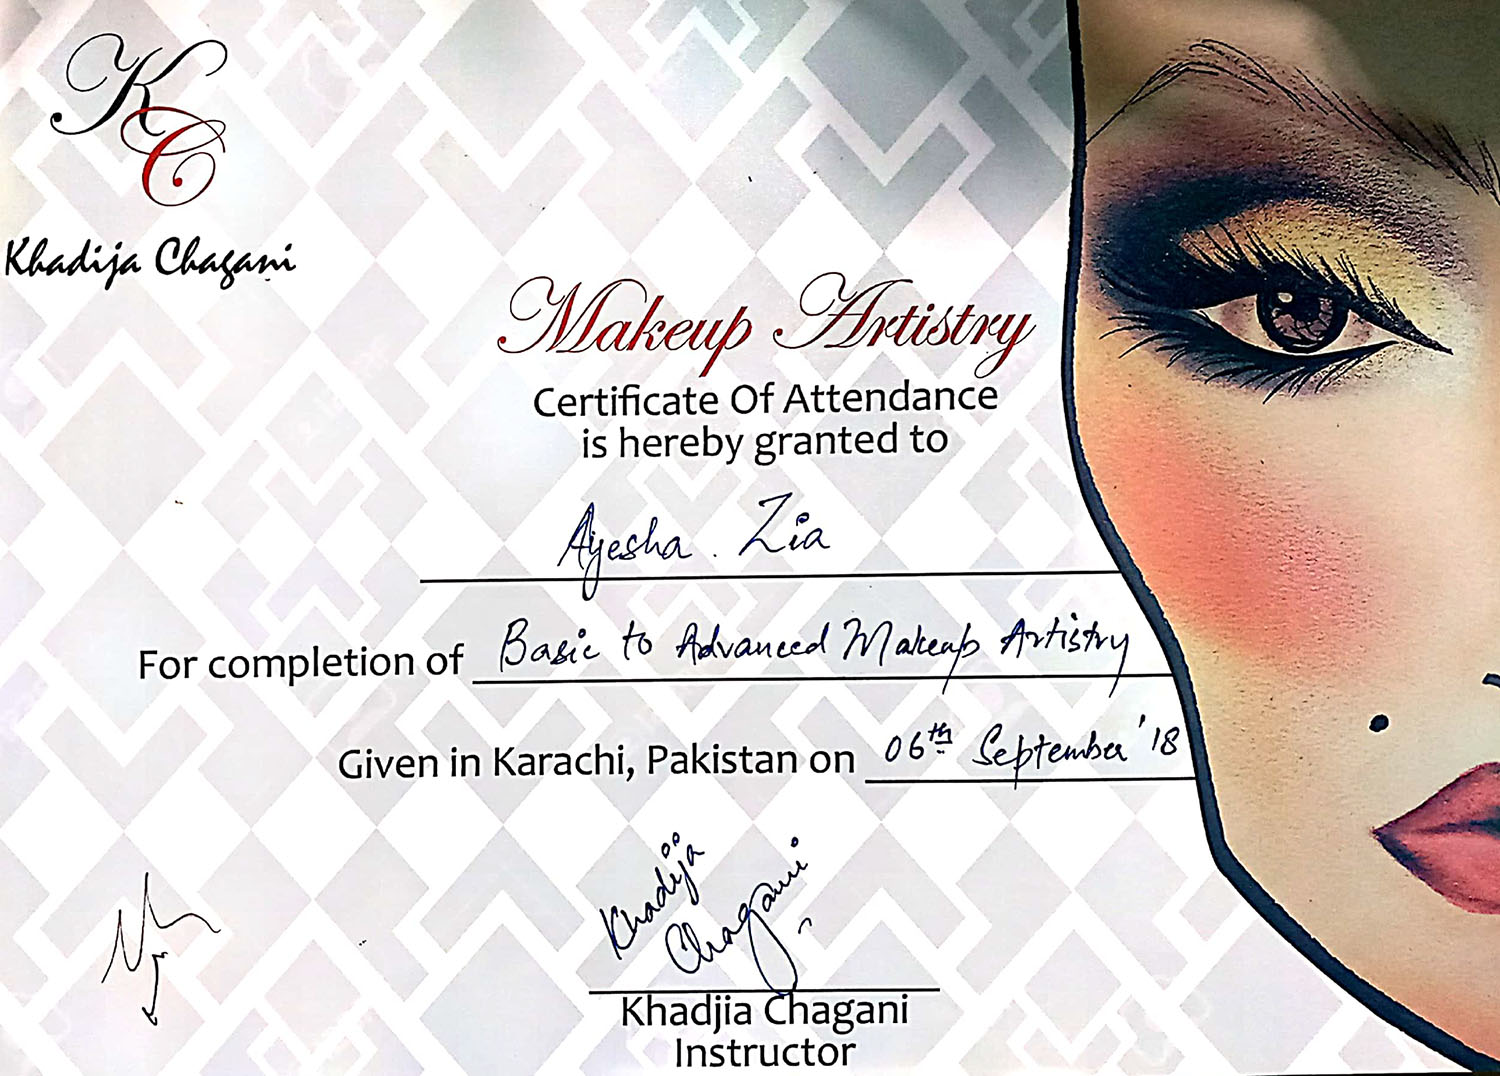 KC
Khadija Chagani
Makeup Artistry
Certificate Of Attendance
is hereby granted to
Ayesha. Zia
For completion of Basic to Advanced Makeup Artistry
Given in Karachi, Pakistan on 06th September '18
Khadija
Chagani
Khadjia Chagani
Instructor